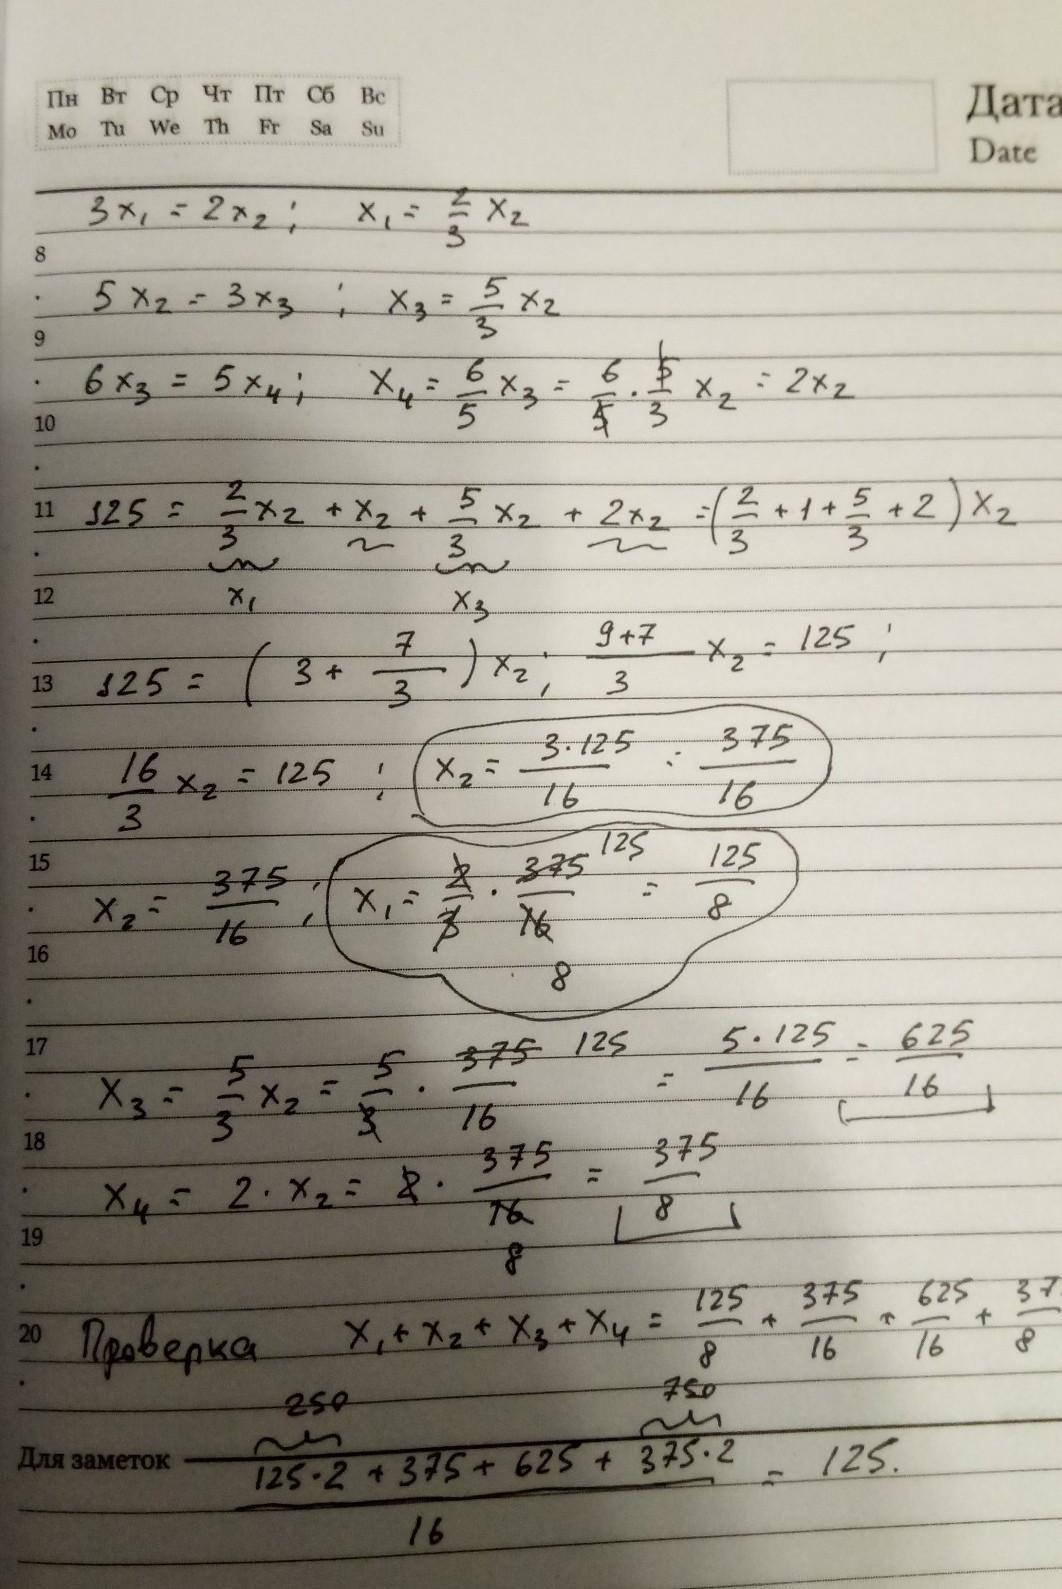 Пн Вт Ср Чт Пт Сб Вс
Mo Tu We Th Fr Sa Su
Дата
Date
3x₁ = 2x₂ ; x₁ = 2/3 x₂
8
5x₂ = 3x₃ ; x₃ = 5/3 x₂
9
6x₃ = 5x₄ ; x₄ = 6/5 x₃ = 6/5 · 5/3 x₂ = 2x₂
10
11 125 = 2/3 x₂ + x₂ + 5/3 x₂ + 2x₂ = (2/3 + 1 + 5/3 + 2) x₂
12 x₁ x₃
13 125 = (3 + 7/3) x₂ ; (9+7)/3 x₂ = 125 ;
14 16/3 x₂ = 125 ; x₂ = 3·125/16 = 375/16
15
x₂ = 375/16 ; x₁ = 2/3 · 375/16 125 8 = 125/8
16
17
x₃ = 5/3 x₂ = 5/3 · 375/16 125 = 5·125/16 = 625/16
18
x₄ = 2 · x₂ = 2 · 375/16 8 = 375/8
19
20 Проверка x₁ + x₂ + x₃ + x₄ = 125/8 + 375/16 + 625/16 + 37/8
250 750
Для заметок (125·2 + 375 + 625 + 375·2)/16 = 125.